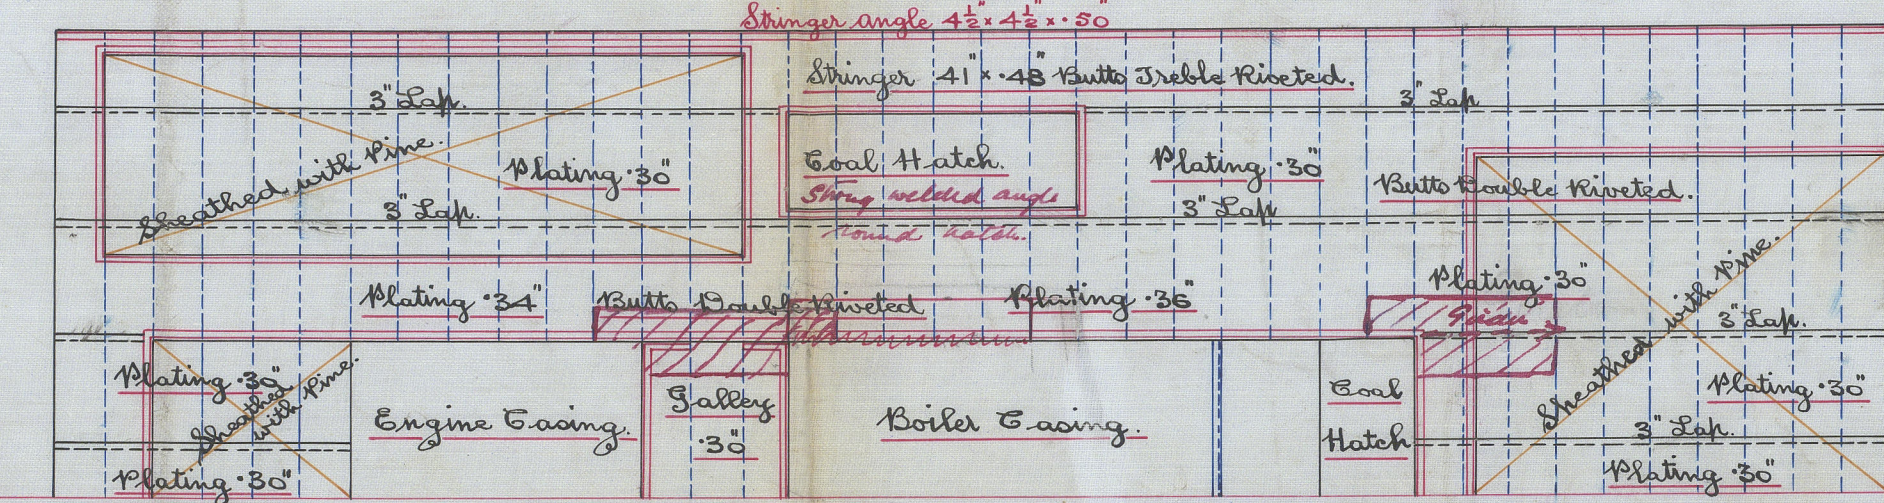 Stringer angle 4½" × 4½" × ·50"
Stringer 41" × ·48" Butts Treble Riveted.
3" Lap.
3" Lap
Sheathed with Pine.
Plating ·30"
Coal Hatch.
Strong welded angle
round hatch.
Plating ·30"
Butts Double Riveted.
3" Lap.
3" Lap
Plating ·34"
Butts Double Riveted
Plating ·36"
Plating ·30"
Girder
Sheathed with Pine.
3" Lap.
Plating ·30"
Sheathed
with Pine.
Engine Casing.
Galley
·30"
Boiler Casing.
Coal
Hatch
Plating ·30"
3" Lap.
Plating ·30"
Plating ·30"